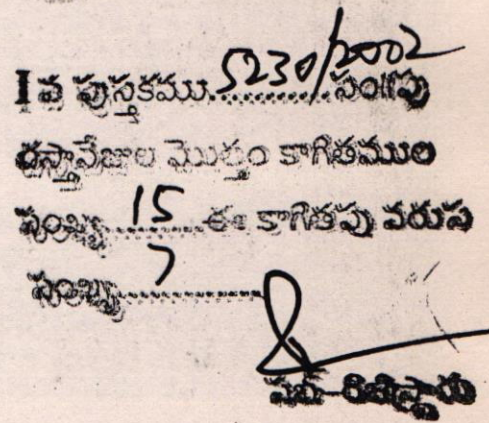 I వ పుస్తకము 5230/2002 సం॥పు
దస్తావేజుల మొత్తం కాగితముల
సంఖ్య 15 ఈ కాగితపు వరుస
సంఖ్య 7
సబ్-రిజిస్ట్రారు